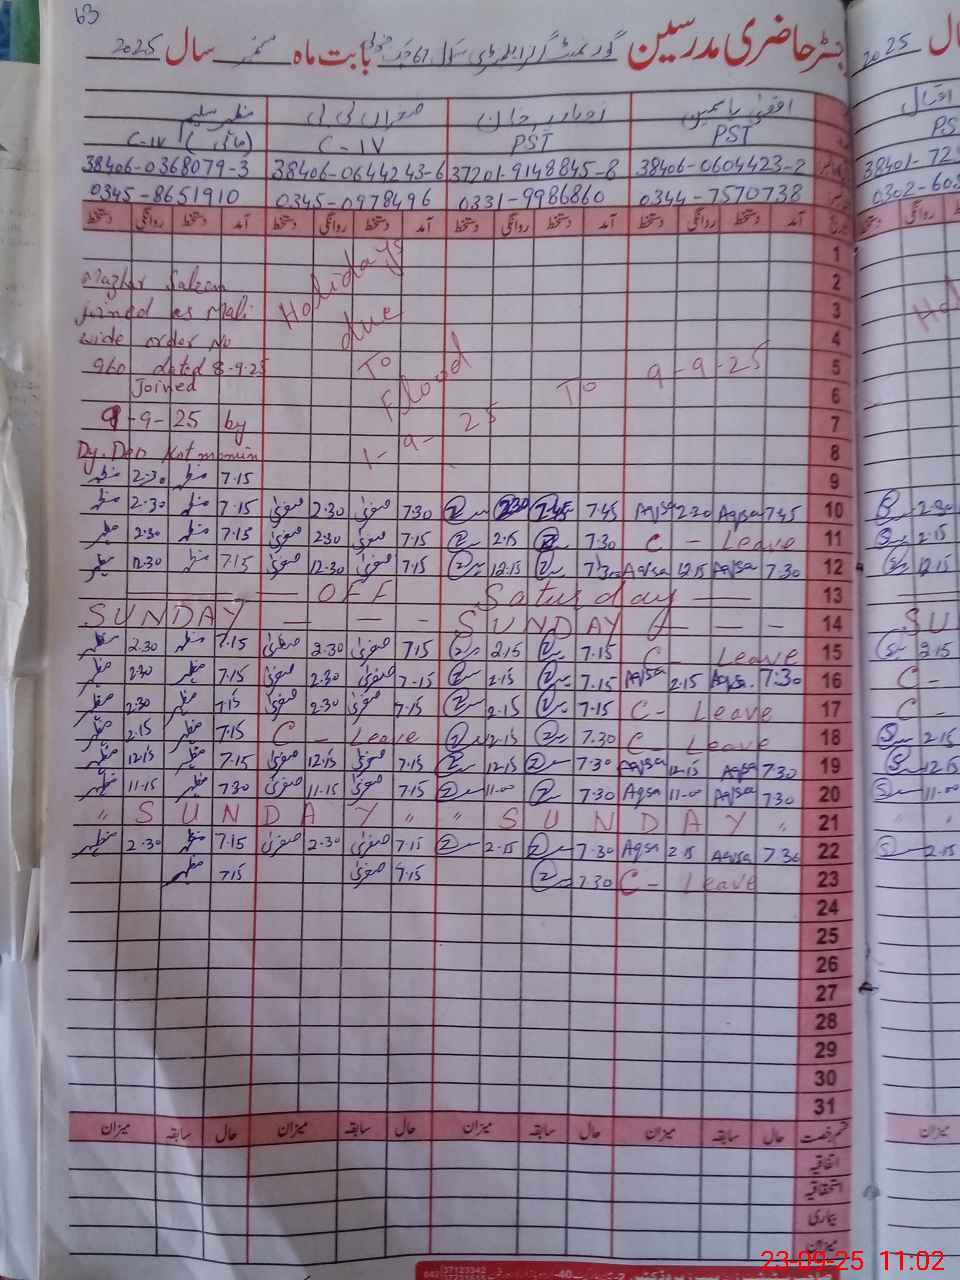 63
رجسٹر حاضری مدرسین گورنمنٹ گرلز سکول 67 بابت ماه ستمبر سال 2025 سال 2025
اقصیٰ یاسمین صغراں بی بی مظہر سلیم اقبال
PST PST C-IV C-IV PS
38406-0604423-2 37201-9148845-8 38406-0644243-6 38406-0368079-3 38401-72
0344-7570738 0331-9986860 0345-0978496 0345-8651910 0302-603
آمد دستخط روانگی دستخط آمد دستخط روانگی دستخط آمد دستخط روانگی دستخط آمد دستخط روانگی دستخط
1
2
3
4
5
6
7
8
Holidays
due
To
Flood
1-9-25 To 9-9-25
Mazhar Saleem
joined as Mali
wide order No
960 dated 8-9-25
Joined
9-9-25 by
Dy. Deo Kotmomin
9 7.15 مظہر 2.30 مظہر
10 7.45 Aqsa 2.30 Aqsa 7.45 7.45 2.30 7.30 صغریٰ 2.30 صغریٰ 7.15 مظہر 2.30 مظہر 2.30
11 C - Leave 7.30 2.15 7.15 صغریٰ 2.30 صغریٰ 7.15 مظہر 2.30 مظہر 2.15
12 7.30 Aqsa 12.15 Aqsa 7.30 12.15 7.15 صغریٰ 12.30 صغریٰ 7.15 مظہر 12.30 مظہر 12.15
13 OFF Saturday
14 SUNDAY - - - SUNDAY - - - SU
15 C - Leave 7.15 2.15 7.15 صغریٰ 2.30 صغریٰ 7.15 مظہر 2.30 مظہر 2.15
16 7:30 Aqsa 2.15 Aqsa 7.15 2.15 7.15 صغریٰ 2.30 صغریٰ 7.15 مظہر 2.30 مظہر C -
17 C - Leave 7.15 2.15 7.15 صغریٰ 2.30 صغریٰ 7.15 مظہر 2.30 مظہر C -
18 C - Leave 7.30 2.15 C - Leave 7.15 مظہر 2.15 مظہر 2.15
19 7.30 Aqsa 12.15 Aqsa 7.30 12.15 7.15 صغریٰ 12.15 صغریٰ 7.15 مظہر 12.15 مظہر 12.15
20 7.30 Aqsa 11.00 Aqsa 7.30 11.00 7.15 صغریٰ 11.15 صغریٰ 7.30 مظہر 11.15 مظہر 11.00
21 " SUNDAY " " SUNDAY "
22 7.30 Aqsa 2.15 Aqsa 7.30 2.15 7.15 صغریٰ 2.30 صغریٰ 7.15 مظہر 2.30 مظہر 2.15
23 C - Leave 7.30 7.15 صغریٰ 7.15 مظہر
24
25
26
27
28
29
30
31
قسم رخصت حال سابقہ میزان حال سابقہ میزان حال سابقہ میزان حال سابقہ میزان میزان
اتفاقیہ
استحقاقیہ
بیماری
میزان
37123342
23-09-25 11:02